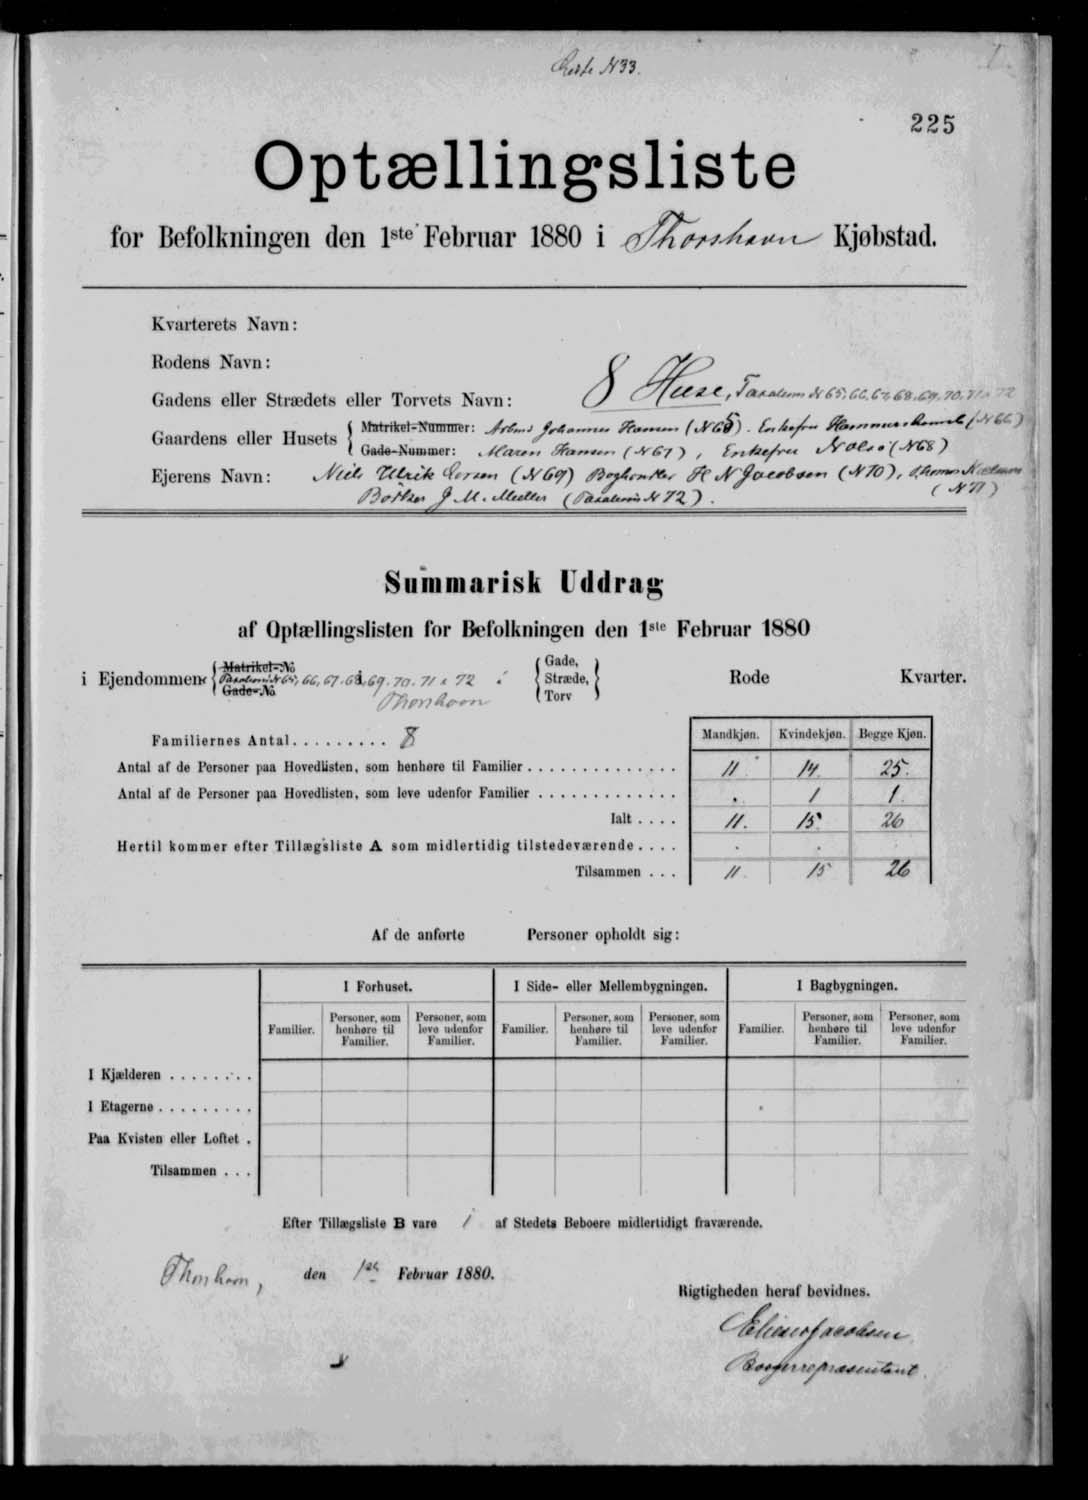 Liste N 33.
225
Optællingsliste
for Befolkningen den 1ste Februar 1880 i Thorshavn Kjøbstad.
Kvarterets Navn:
Rodens Navn:
Gadens eller Strædets eller Torvets Navn: 8 Huse, Taxations N 65, 66, 67, 68, 69, 70, 71 & 72
Gaardens eller Husets Matrikel-Nummer: Johannes Hansen (N 65). Enkefru (N 66)
Gade-Nummer: Maren Hansen (N 67), Enkefru Nolsø (N 68)
Ejerens Navn: Niels Ulrik (N 69) Boghandler H N Jacobsen (N 70), Thomas
Bødker J M. Müller (Taxations N 72). (N 71)
Summarisk Uddrag
af Optællingslisten for Befolkningen den 1ste Februar 1880
i Ejendommene Matrikel-No Taxations N 65, 66, 67. 68, 69. 70. 71 & 72 Gade-No i Gade, Stræde, Torv Rode Kvarter.
Thorshavn
Mandkjøn. Kvindekjøn. Begge Kjøn.
Familiernes Antal......... 8
Antal af de Personer paa Hovedlisten, som henhøre til Familier ............... 11 14. 25.
Antal af de Personer paa Hovedlisten, som leve udenfor Familier .............. . 1 1.
Ialt .... 11. 15 26
Hertil kommer efter Tillægsliste A som midlertidig tilstedeværende .... . . .
Tilsammen ... 11 15 26
Af de anførte Personer opholdt sig:
I Forhuset. I Side- eller Mellembygningen. I Bagbygningen.
Familier. Personer, som henhøre til Familier. Personer, som leve udenfor Familier. Familier. Personer, som henhøre til Familier. Personer, som leve udenfor Familier. Familier. Personer, som henhøre til Familier. Personer, som leve udenfor Familier.
I Kjælderen ........
I Etagerne .........
Paa Kvisten eller Loftet .
Tilsammen ...
Efter Tillægsliste B vare 1 af Stedets Beboere midlertidigt fraværende.
Thorshavn, den 1ste Februar 1880.
Rigtigheden heraf bevidnes.
Elieser Jacobsen
Borgerrepræsentant.